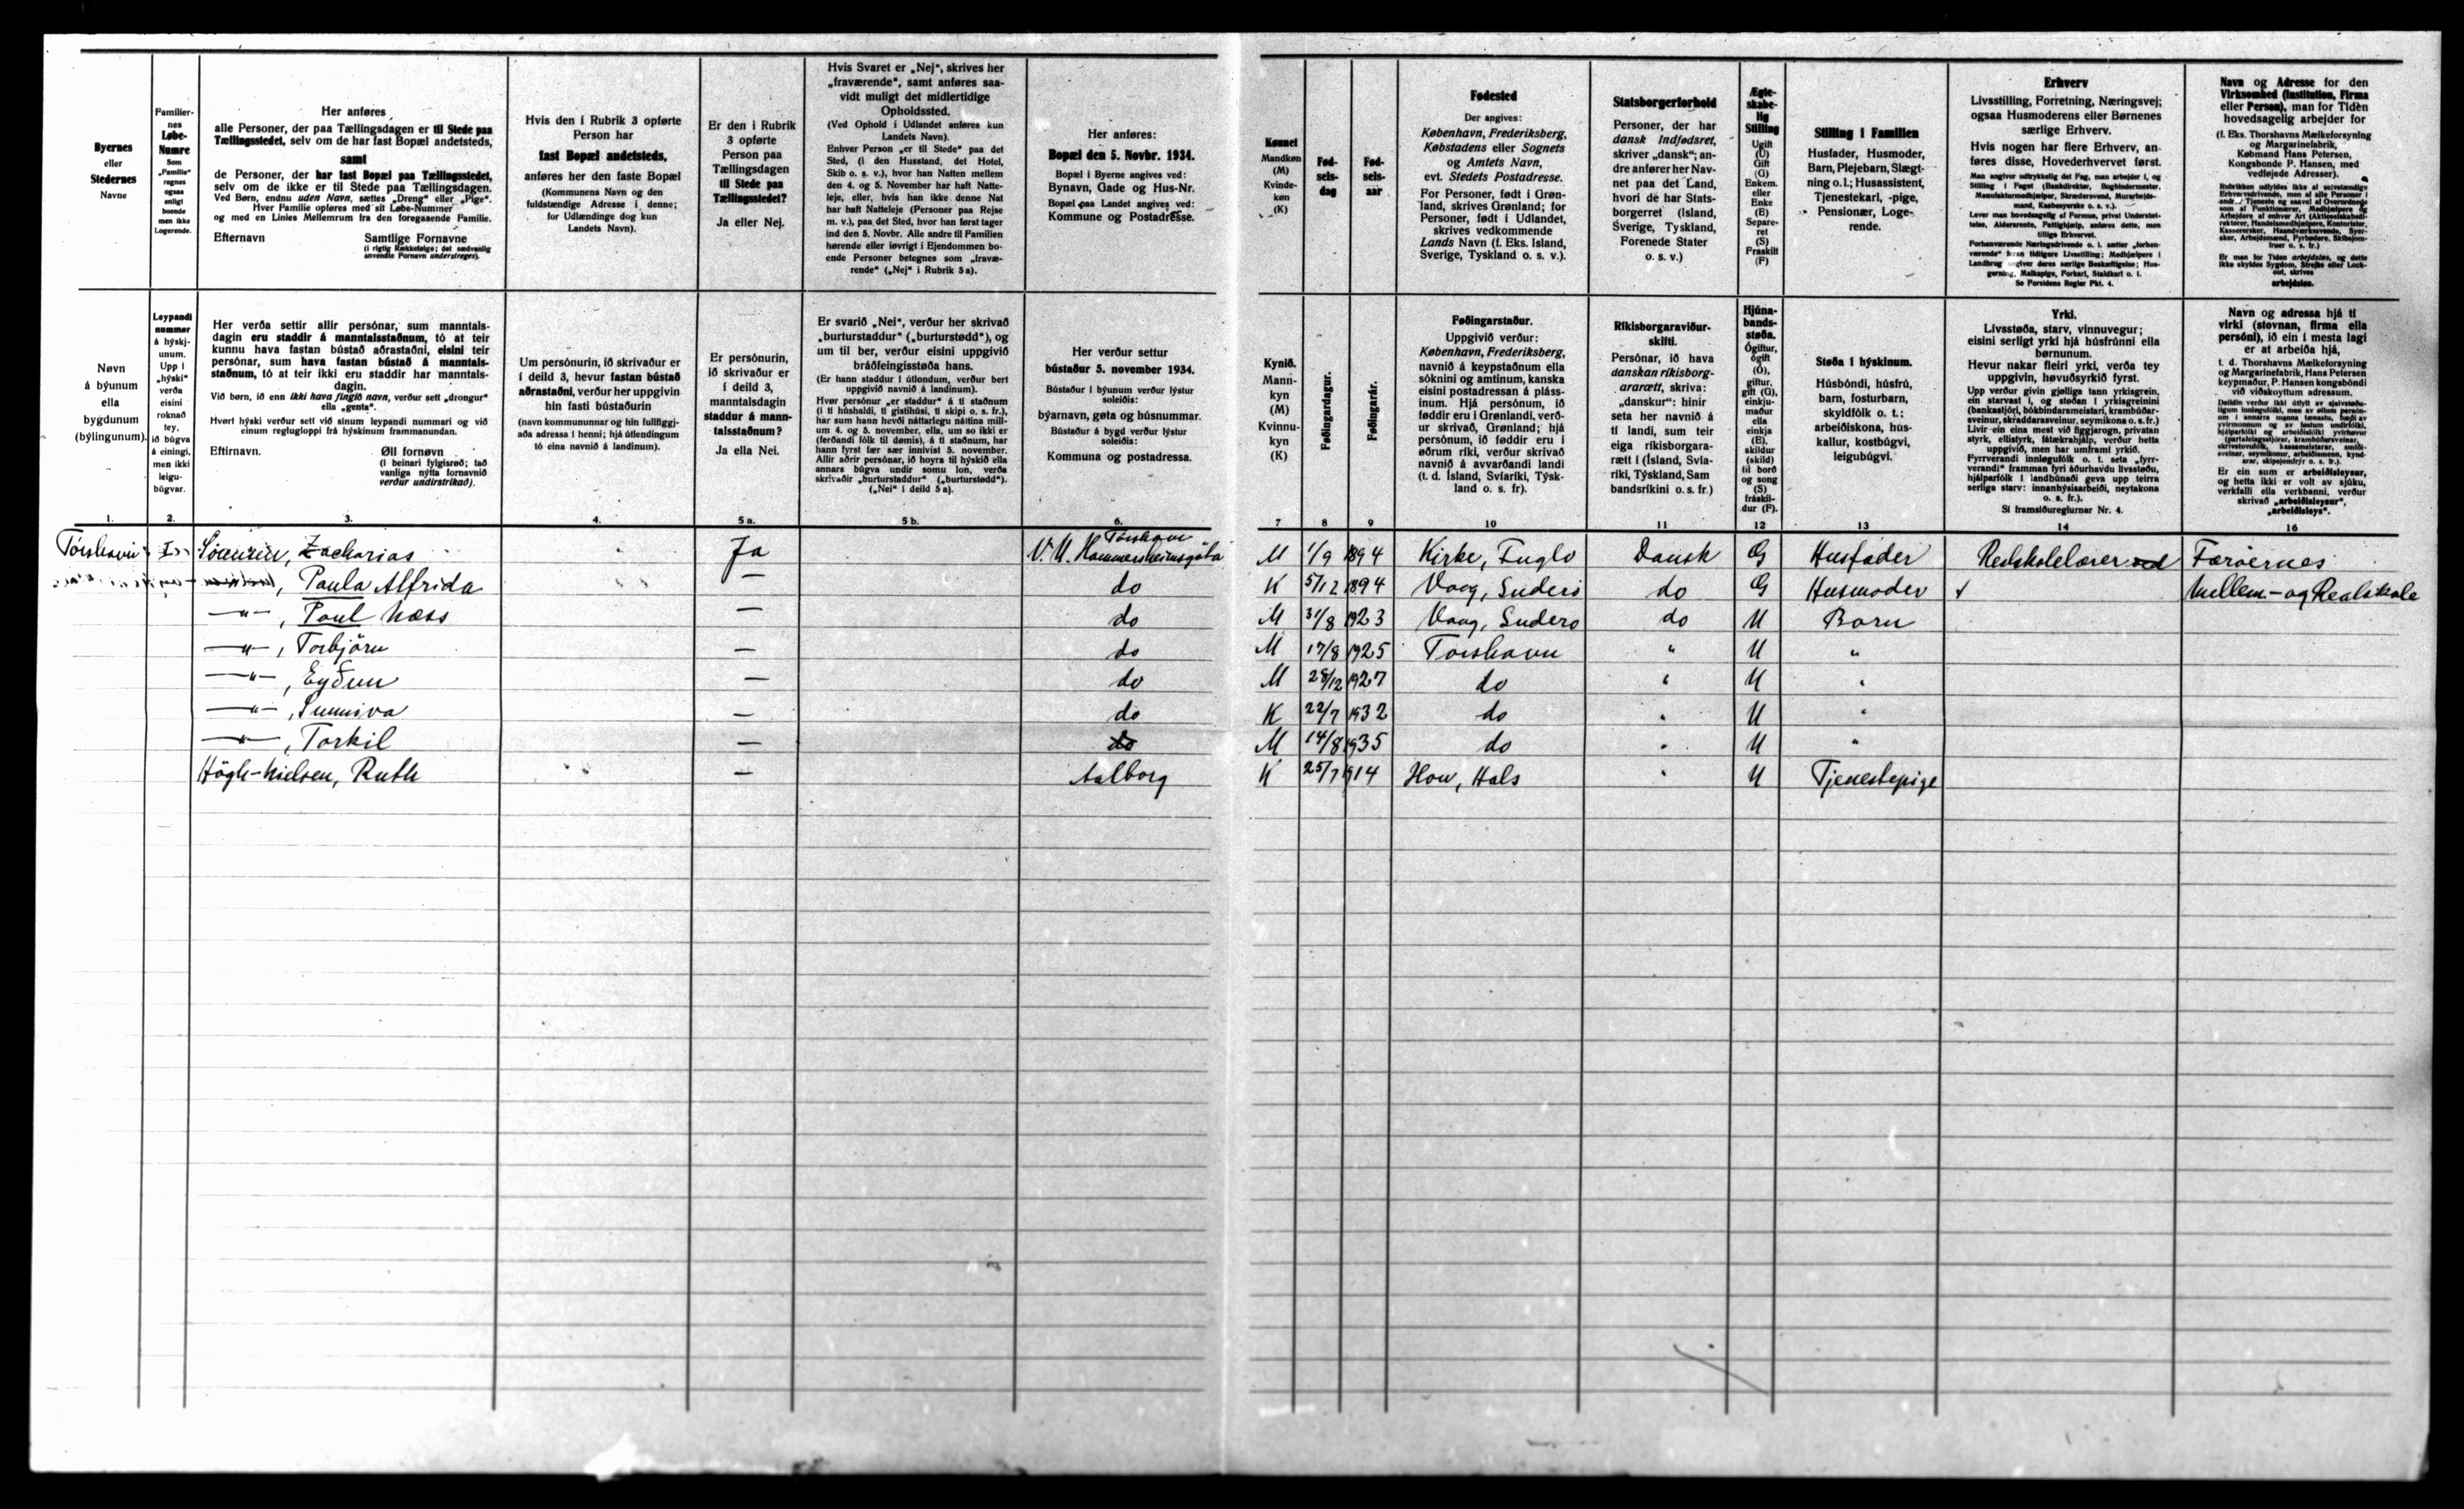 Byernes
eller
Stedernes
Navne
Familier-
nes
Løbe-
Numre
Som
„Familie"
regnes
ogsaa
enligt
boende
men ikke
Logerende.
Her anføres
alle Personer, der paa Tællingsdagen er til Stede paa
Tællingsstedet, selv om de har fast Bopæl andetsteds,
samt
de Personer, der har fast Bopæl paa Tællingsstedet,
selv om de ikke er til Stede paa Tællingsdagen.
Ved Børn, endnu uden Navn, sættes „Dreng" eller „Pige".
Hver Familie opføres med sit Løbe-Nummer
og med en Linies Mellemrum fra den foregaaende Familie.
Efternavn Samtlige Fornavne
(i rigtig Rækkefølge; det sædvanlig
anvendte Fornavn understreges).
Hvis den i Rubrik 3 opførte
Person har
fast Bopæl andetsteds,
anføres her den faste Bopæl
(Kommunens Navn og den
fuldstændige Adresse i denne;
for Udlændinge dog kun
Landets Navn).
Er den i Rubrik
3 opførte
Person paa
Tællingsdagen
til Stede paa
Tællingsstedet?
Ja eller Nej.
Hvis Svaret er „Nej", skrives her
„fraværende", samt anføres saa-
vidt muligt det midlertidige
Opholdssted.
(Ved Ophold i Udlandet anføres kun
Landets Navn).
Enhver Person „er til Stede" paa det
Sted, (i den Husstand, det Hotel,
Skib o. s. v.), hvor han Natten mellem
den 4. og 5. November har haft Natte-
leje, eller, hvis han ikke denne Nat
har haft Natteleje (Personer paa Rejse
m. v.), paa det Sted, hvor han først tager
ind den 5. Novbr. Alle andre til Familien
hørende eller iøvrigt i Ejendommen bo-
ende Personer betegnes som „fravæ-
rende" („Nej" i Rubrik 5 a).
Her anføres:
Bopæl den 5. Novbr. 1934.
Bopæl i Byerne angives ved:
Bynavn, Gade og Hus-Nr.
Bopæl paa Landet angives ved:
Kommune og Postadresse.
Kønnet
Mandkøn
(M)
Kvinde-
køn
(K)
Fød-
sels-
dag
Fød-
sels-
aar
Fødested
Der angives:
København, Frederiksberg,
Købstadens eller Sognets
og Amtets Navn,
evt. Stedets Postadresse.
For Personer, født i Grøn-
land, skrives Grønland; for
Personer, født i Udlandet,
skrives vedkommende
Lands Navn (f. Eks. Island,
Sverige, Tyskland o. s. v.).
Statsborgerforhold
Personer, der har
dansk Indfødsret,
skriver „dansk"; an-
dre anfører her Nav-
net paa det Land,
hvori de har Stats-
borgerret (Island,
Sverige, Tyskland,
Forenede Stater
o. s. v.)
Ægte-
skabe-
lig
Stilling
Ugift
(U)
Gift
(G)
Enkem.
eller
Enke
(E)
Separe-
ret
(S)
Fraskilt
(F)
Stilling i Familien
Husfader, Husmoder,
Barn, Plejebarn, Slægt-
ning o. l.; Husassistent,
Tjenestekarl, -pige,
Pensionær, Loge-
rende.
Erhverv
Livsstilling, Forretning, Næringsvej;
ogsaa Husmoderens eller Børnenes
særlige Erhverv.
Hvis nogen har flere Erhverv, an-
føres disse, Hovederhvervet først.
Se Forsidens Regler Pkt. 4.
Navn og Adresse for den
Virksomhed (Institution, Firma
eller Person), man for Tiden
hovedsagelig arbejder for
(f. Eks. Thorshavns Mælkeforsyning
og Margarinefabrik,
Købmand Hans Petersen,
Kongsbonde P. Hansen, med
vedføjede Adresser).
Er man for Tiden arbejdsløs, og dette
ikke skyldes Sygdom, Strejke eller Lock-
out, skrives
arbejdsløs.
Nøvn
á býunum
ella
bygdunum
(býlingunum).
Leypandi
nummer
á hýskj-
unum.
Upp í
„hýski"
verða
eisini
roknað
tey,
ið búgva
á einingi,
men ikki
leigu-
búgvar.
Her verða settir allir persónar, sum manntals-
dagin eru staddir á manntalsstaðnum, tó at teir
kunnu hava fastan bústað aðrastaðni, eisini teir
persónar, sum hava fastan bústað á manntals-
staðnum, tó at teir ikki eru staddir har manntals-
dagin.
Við børn, ið enn ikki hava fingið navn, verður sett „drongur"
ella „genta".
Hvørt hýski verður sett við sínum leypandi nummari og við
einum regluglоppi frá hýskinum frammanundan.
Eftirnavn. Øll fornøvn
(í beinari fylgisrøð; tað
vanliga nýtta fornavnið
verður undirstrikað).
Um persónurin, ið skrivaður er
í deild 3, hevur fastan bústað
aðrastaðni, verður her uppgivin
hin fasti bústaðurin
(navn kommununnar og hin fullfiggj-
aða adressa í henni; hjá útlendingum
tó eina navnið á landinum).
Er persónurin,
ið skrivaður er
í deild 3,
manntalsdagin
staddur á mann-
talsstaðnum?
Ja ella Nei.
Er svarið „Nei", verður her skrivað
„burturstaddur" („burturstødd"), og
um til ber, verður eisini uppgivið
bráðfeingisstøða hans.
(Er hann staddur í útlondum, verður bert
uppgivið navnið á landinum).
Hvør persónur „er staddur" á tí staðnum
(í tí húshaldi, tí gistihúsi, tí skipi o. s. fr.),
har sum hann hevði náttarlegu náttina mill-
um 4. og 5. november, ella, um so ikki er
(ferðandi fólk til dømis), á tí staðnum, har
hann fyrst fær sær innivist 5. november.
Allir aðrir persónar, ið hoyra til hýskið ella
annars búgva undir somu lon, verða
skrivaðir „burturstaddur" („burturstødd").
(„Nei" í deild 5 a)
Her verður settur
bústaður 5. november 1934.
Bústaður í býunum verður lýstur
soleiðis:
býarnavn, gøta og húsnummar.
Bústaður á bygd verður lýstur
soleiðis:
Kommuna og postadressa.
Kynið.
Mann-
kyn
(M)
Kvinnu-
kyn
(K)
Føðingardagur.
Føðingarár.
Føðingarstaður.
Uppgivið verður:
København, Frederiksberg,
navnið á keypstaðnum ella
sóknini og amtinum, kanska
eisini postadressan á pláss-
inum. Hjá persónum, ið
føddir eru í Grønlandi, verð-
ur skrivað, Grønland; hjá
persónum, ið føddir eru í
øðrum ríki, verður skrivað
navnið á avvarðandi landi
(t. d. Ísland, Svíaríki, Týsk-
land o. s. fr).
Ríkisborgaraviður-
skifti.
Persónar, ið hava
danskan ríkisborg-
ararætt, skriva:
„danskur": hinir
seta her navnið á
tí landi, sum teir
eiga ríkisborgara-
rætt í (Ísland, Svía-
ríki, Týskland, Sam
bandsríkini o. s. fr.)
Hjúna-
bands-
støða.
Ógiftur,
ógift
(Ó),
giftur,
gift (G),
einkju-
maður
ella
einkja
(E),
skildur
(skild)
til borð
og song
(S)
fráskil-
dur (F).
Støða í hýskinum.
Húsbóndi, húsfrú,
barn, fosturbarn,
skyldfólk o. t.;
arbeiðiskona, hús-
kallur, kostbúgvi,
leigubúgvi.
Yrki.
Livsstøða, starv, vinnuvegur;
eisini serligt yrki hjá húsfrúnni ella
børnunum.
Hevur nakar fleiri yrki, verða tey
uppgivin, høvuðsyrkið fyrst.
Sí framsíðureglurnar Nr. 4.
Navn og adressa hjá tí
virki (stovnan, firma ella
persóni), ið ein í mesta lagi
er at arbeiða hjá,
t. d. Thorshavns Mælkeforsyning
og Margarinefabrik, Hans Petersen
keypmaður, P. Hansen kongsbóndi
við viðskoyttum adressum.
Er ein sum er arbeiðisleysur,
og hetta ikki er volt av sjúku,
verkfalli ella verkbanni, verður
skrivað „arbeiðisleysur",
„arbeiðisleys".
1. 2. 3. 4. 5 a. 5 b. 6. 7 8 9 10 11 12 13 14 16
Tórshavn I Zacharias Ja Tórshavn V. U. Hammersheimsgöta M 1/9 1894 Kirke, Fuglo Dansk G Husfader Realskolelærer ved Færöernes
, Paula Alfrida — do K 5/12 1894 Vaag, Suderö do G Husmoder Mellem- og Realskole
—"—, Poul Næss — do M 31/8 1923 Vaag, Suderö do U Barn
—"—, Torbjörn — do M 17/8 1925 Torshavn " U "
—"—, Eyðun — do M 28/12 1927 do " U "
—"—, Sunniva — do K 22/7 1932 do " U "
—"—, Torkil — do M 14/8 1935 do " U "
Högh-Nielsen, Ruth — Aalborg K 25/7 1914 Hou, Hals " U Tjenestepige